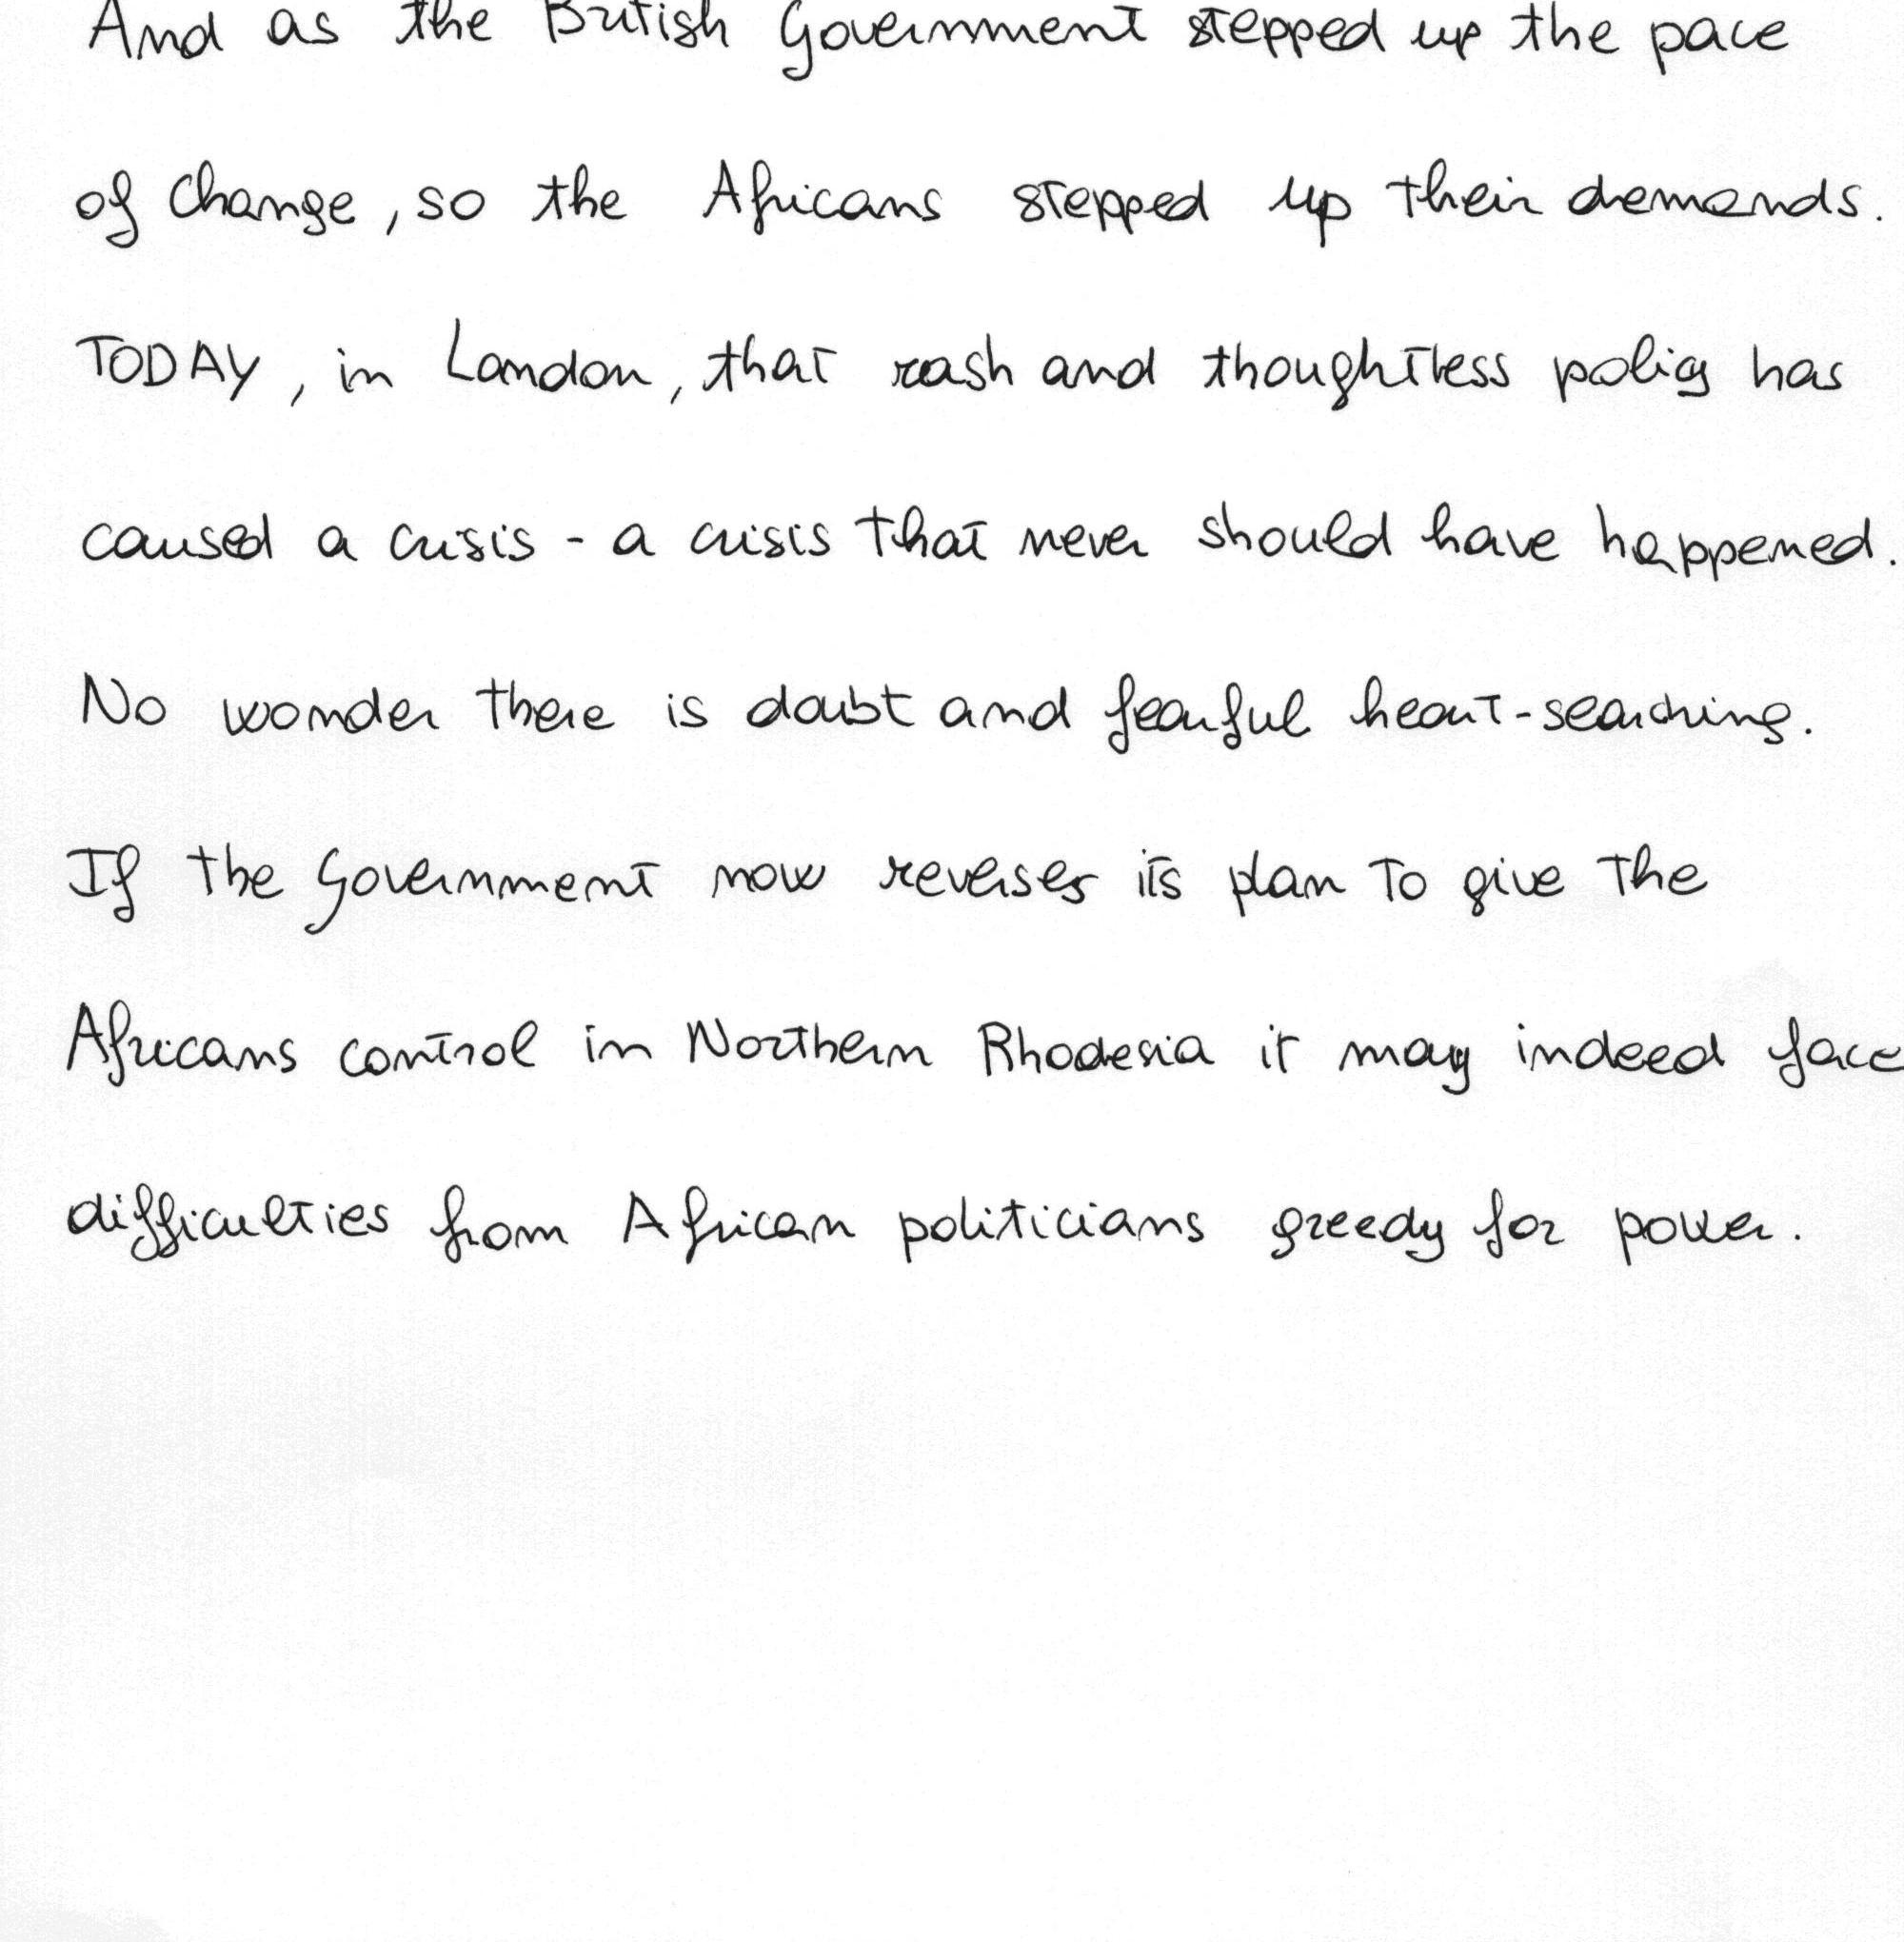 And as the British Government stepped up the pace
of change, so the Africans stepped up their demands.
TODAY, in London, that rash and thoughtless policy has
caused a crisis - a crisis that never should have happened.
No wonder there is doubt and fearful heart-searching.
If the Government now reverses its plan to give the
Africans control in Northern Rhodesia it may indeed face
difficulties from African politicians greedy for power.